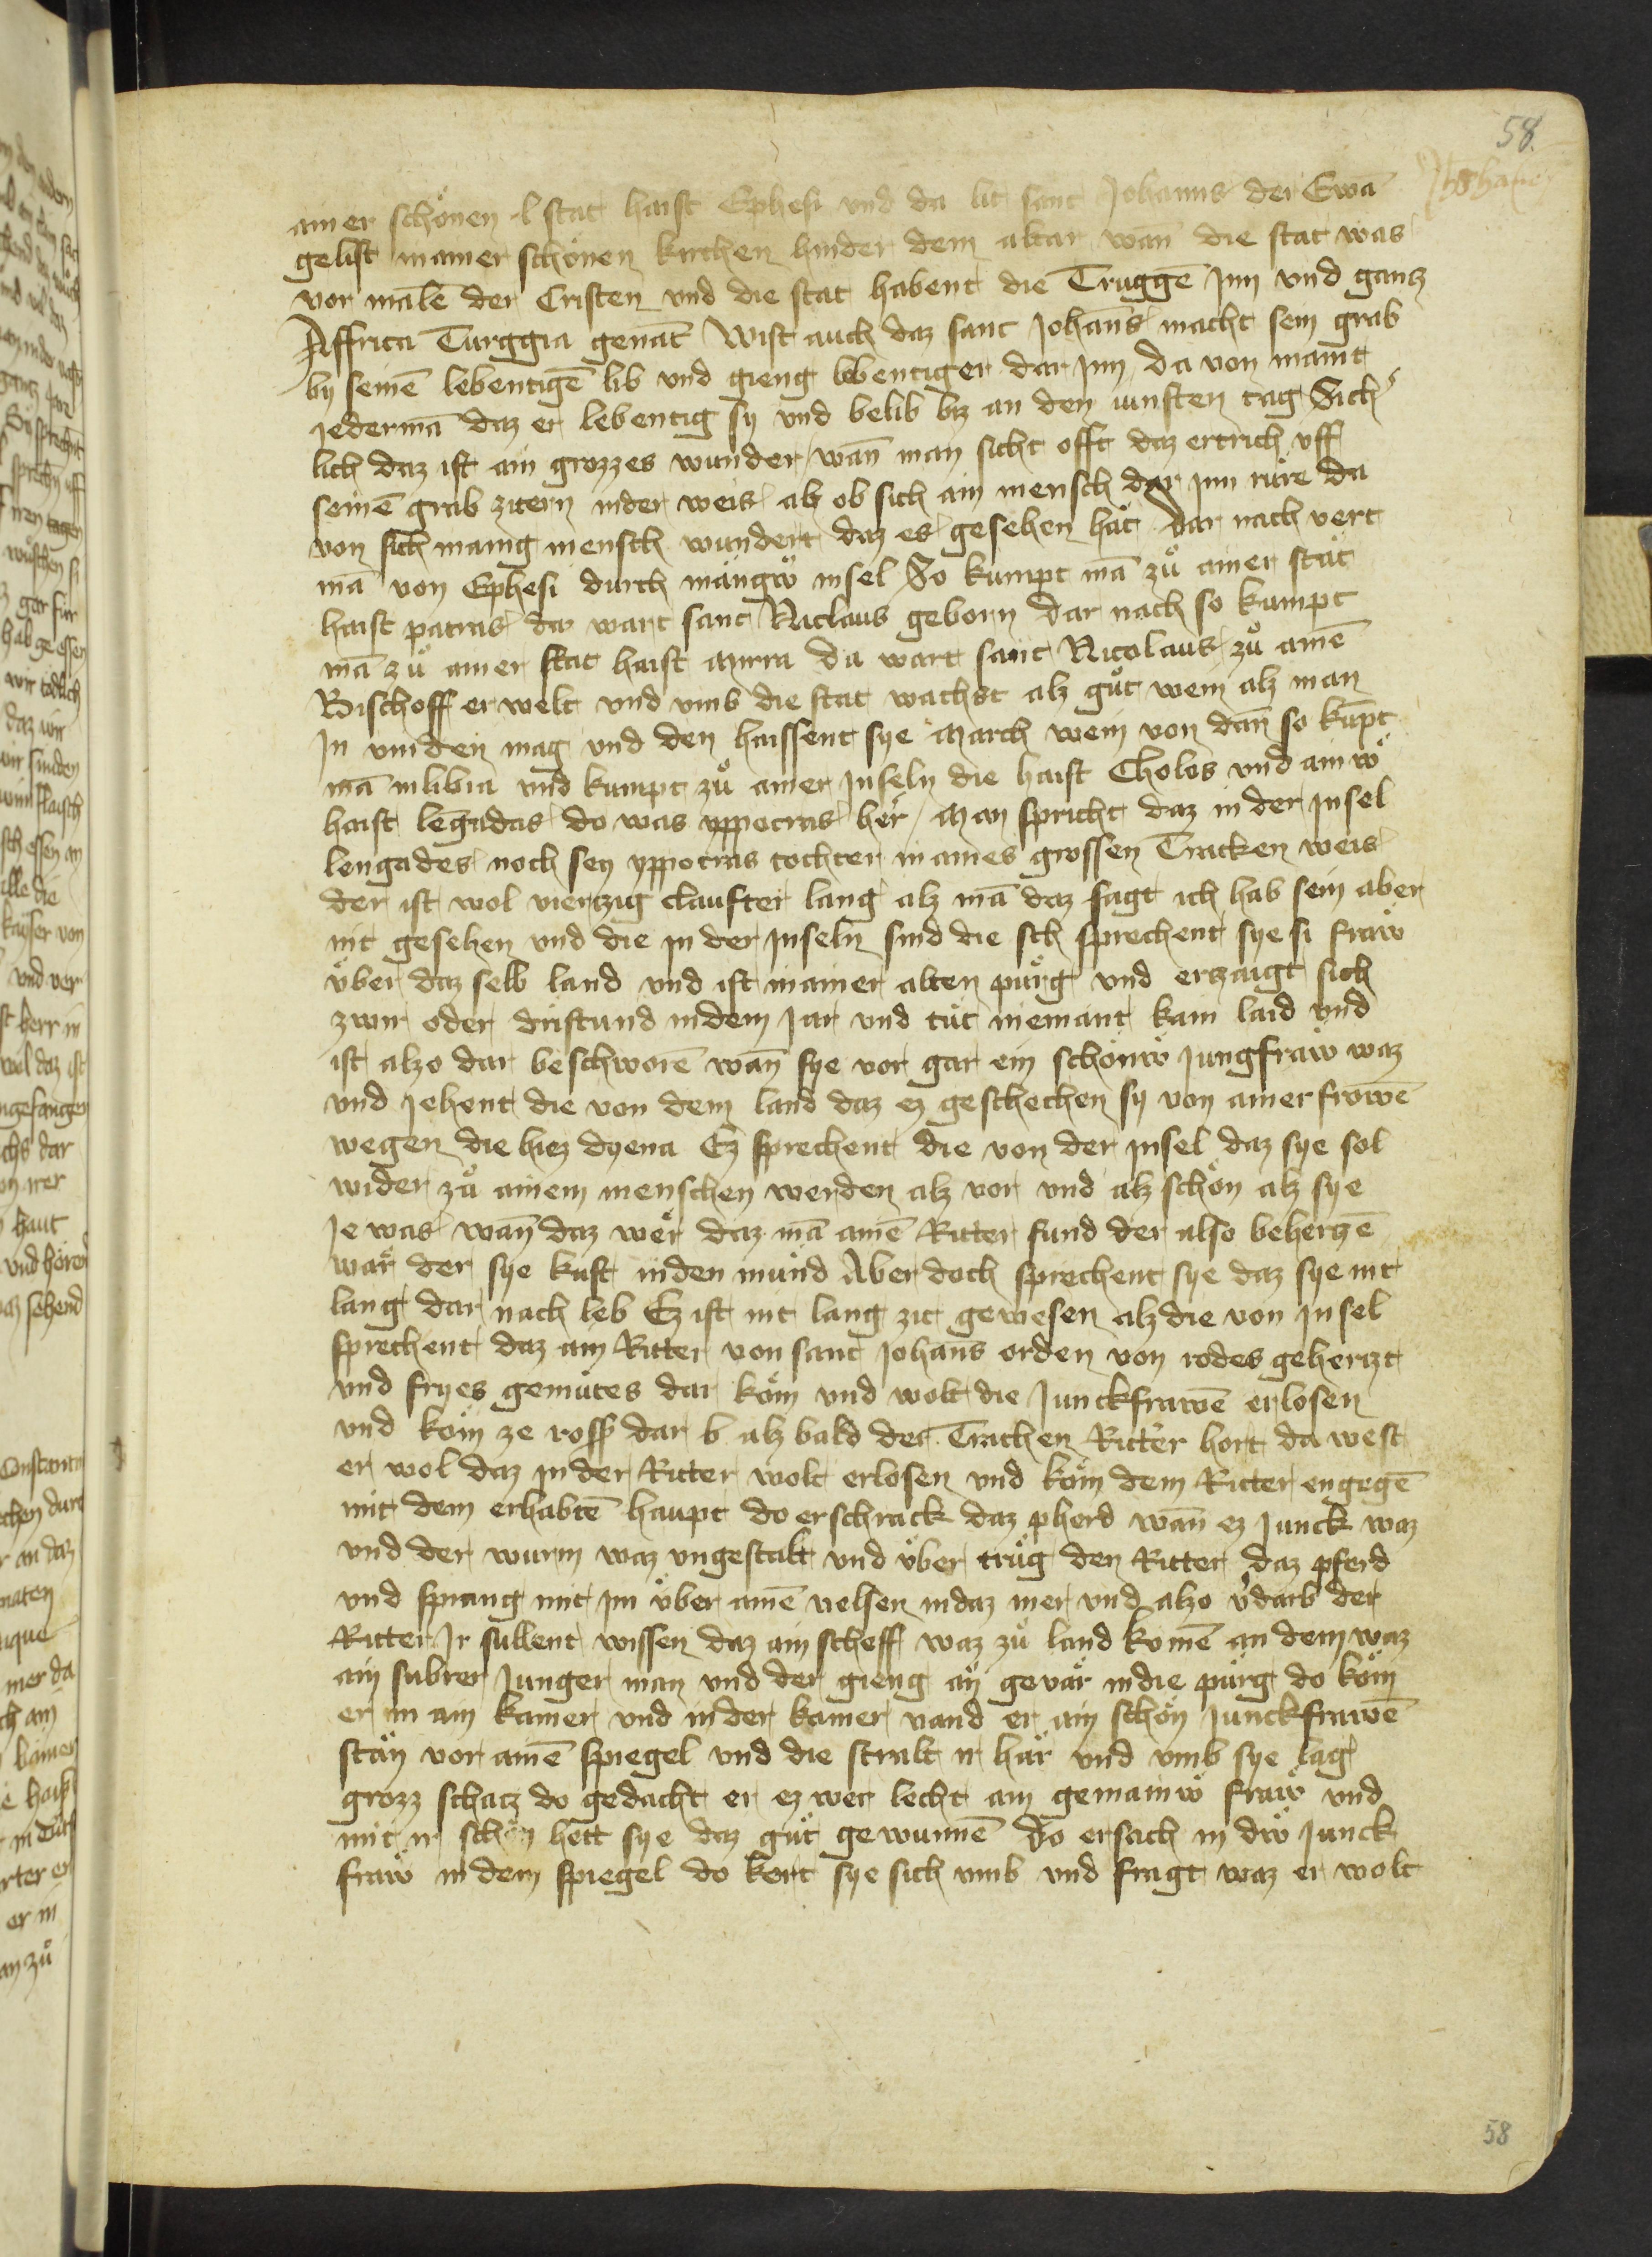 58.
Johanes
ainer schönen stat haist Ephesi vnd da lit sant Johanns der Ewā
gelist in ainer schönen kirchen hinder dem altar wan die stat was
vor mālē der Cristen vnd die stat habent die Truggē Jnn vnd gantz
Affrica Turggia genāt Wist auch daz sant Johans macht sein grab
by seinē lebentigē lib vnd gieng lebentiger dar Jnn da von maint
Jedermā daz er lebentig sy vnd belib biz an den iunsten tag Sich
lich daz ist ain grozzes wunder wān man sicht offt daz ertrich vff
seinē grab zitern in der weis alz ob sich ain mensch dar Jnn rüre da
von sich manig mensch wundert daz es gesehen hāt dar nach vert
mā von Ephesi durch mangw insel So kumpt mā zů ainer stāt
haist patras da wart sant Niclaus geborn dar nach so kumpt
mā zů ainer stat haist mirra da wart sant Nicolaus zů ainē
Bischoff er welt vnd vmb die stat wachst alz gůt wein alz man
Jn vinden mag vnd den haissent sye March wein von dān so kūpt
mā in libia vnd kumpt zů ainer Jnseln die haist Cholos vnd ain w
haist lēgadas do was yppocras her Man spricht daz in der Jnsel
lengades noch sey yppocras tochter in aines grossen Tracken weis
der ist wol viertzig claufter lang alz mā daz sagt ich hab sein aber
nit gesehen vnd die jn der Jnseln sind die sch sprechent sye si fraw
über daz selb land vnd ist in ainer alten pürg vnd ertzaigt sich
zwir oder dristund in dem Jar vnd tůt niemant kain laid vnd
ist alzo dar beschworē wan sye vor gar ein schönw Jungfraw waz
vnd Jehent die von dem land daz ez geschechen sy von ainer frowē
wegen die hiez dyena Ez sprechent die von der Jnsel daz sye sol
wider zů ainem menschen werden alz vor vnd alz schön alz sye
Je was wān daz wer daz mā ainē Ritter fund der also behertzē
wär der sye kust in den mund Aber doch sprechent sye daz sye nit
lang dar nach leb Ez ist nit lang zit gewesen alz die von Jnsel
sprechent daz ain Ritter von sant Johans orden von rodes gehertzt
vnd fryes gemütes dar köm vnd wolt die Junckfrawē erlosen
vnd köm ze ross dar b alz bald der Trachen Ritter hort da west
er wol daz Jn der Ritter wolt erlosen vnd köm dem Ritter engegē
mit dem erhabtē haupt do erschrack daz pherd wān ez Junck waz
vnd der wurm waz vngestalt vnd über trůg den Ritter daz pferd
vnd sprang mit im über ainē velsen in daz mer vnd alzo v'darb der
Ritter Jr sullent wissen daz ain scheff waz zů land komē an dem waz
ain subrer Junger man vnd der gieng än gevär in die pürg do köm
er in ain kamer vnd in der kamer vand er ain schön Junckfrawē
stän vor ainē spiegel vnd die stralt ir här vnd vmb sye lag
grozz schatz do gedacht er ez wer lecht ain gemainw fraw vnd
mit ir schön hett sye daz gůt gewunnē do ersach in dw Junck
fraw in dem spiegel do kert sye sich vmb vnd fragt waz er wolt
58